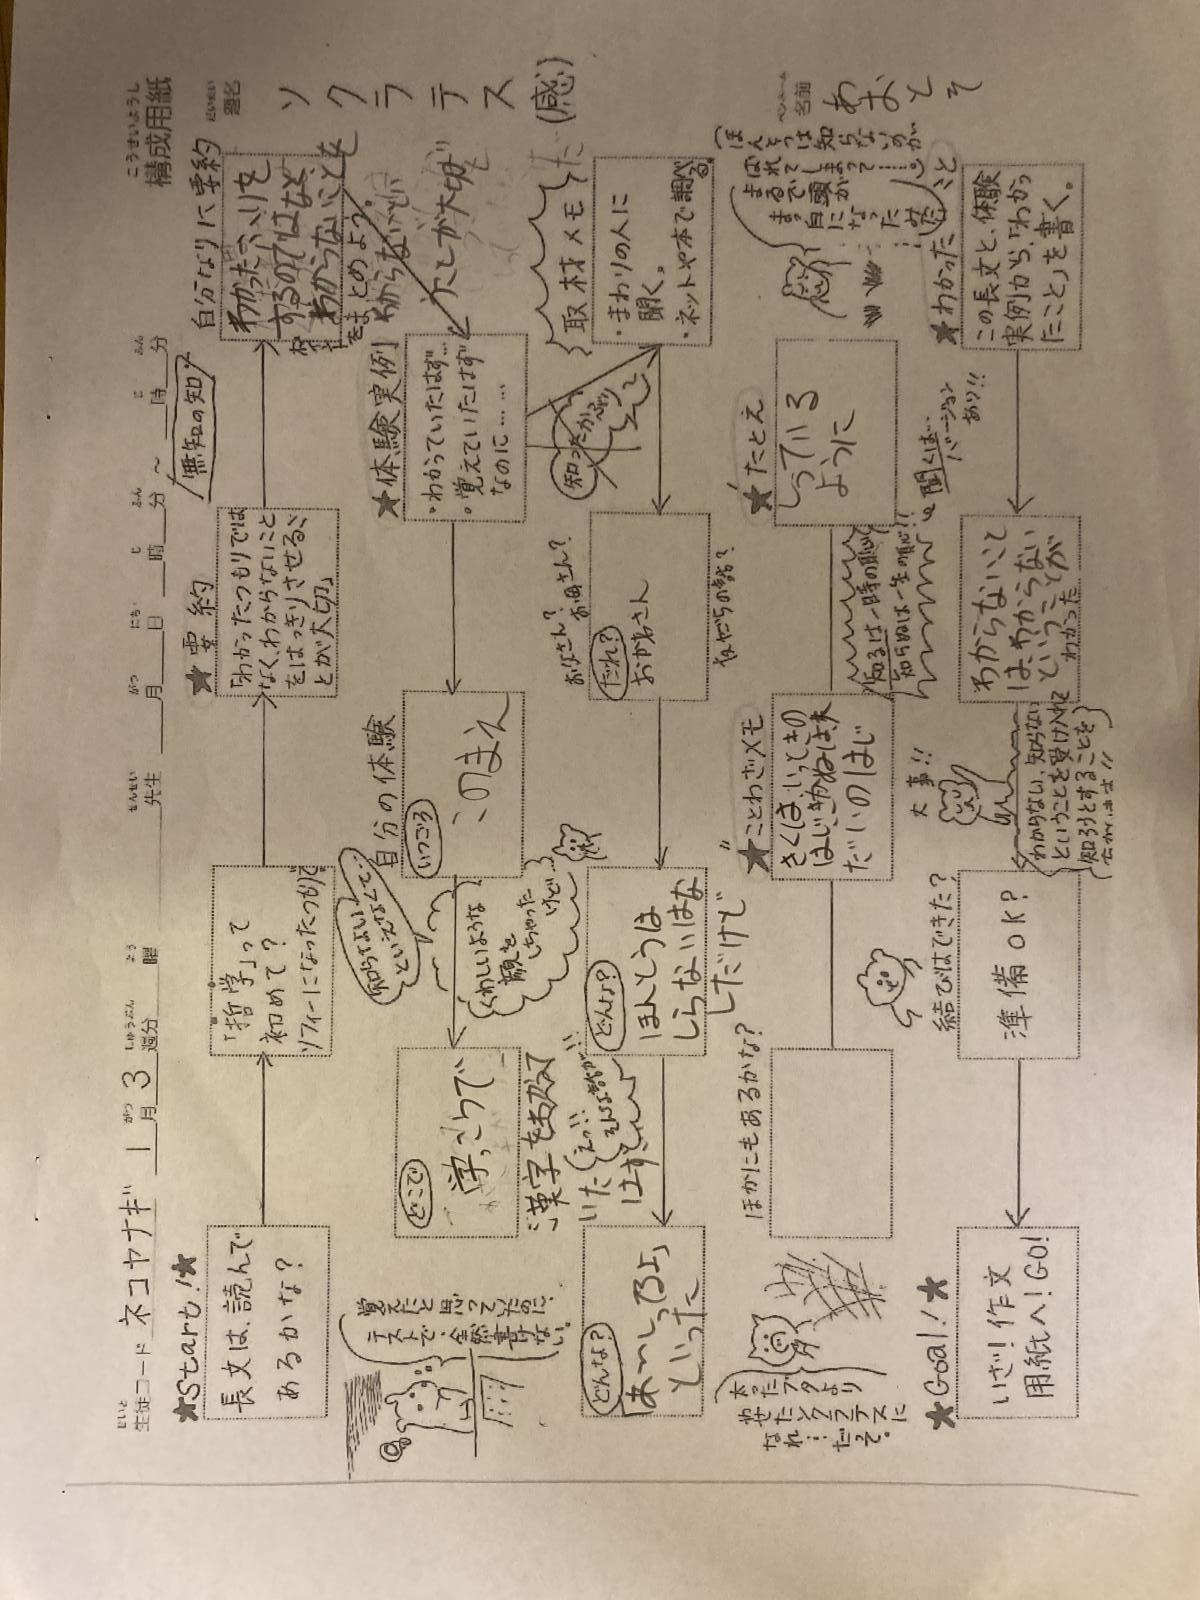 構成用紙
こうせいようし
生徒コード ネコヤナギ 1月3週分
せいと がつ しゅうぶん
曜 先生 月 日 時 分 ～ 時 分
よう せんせい がつ にち じ ふん じ ふん
題名
だいめい
ソクラテス
(感)
名前
ペンネーム
あおとそ
★Start!★
長文は、読んで
あるかな？
「哲学」って
初めて？
ソフィーになったつもりで
★要約
「わかったつもりでは
なく、わからないこと
をはっきりさせるこ
とが大切」
無知の知
自分なりに要約
わかったふりを
するのではなく、
わからないことを
まとめよう。
ことが大切だ
★体験実例
・わかっていたはず…
・覚えていたはず
なのに……
自分の体験
いつごろ
このまえ
知らなくてもいいよなんて…
といえなくて…
くわしいような
顔を
しちゃった
けど…
どこで
学こうで
漢字をおぼえて
いた
はず
覚えたと思っていたのに、
テストで、全然書けない。
取材メモ
・まわりの人に
聞く。
・ネットや本で調べる。
知ったかぶり
お父さん？
お母さん？
だれ？
おかあさん
友だちの話？
どんな？
ほんとうは
しらないはな
しだけど
えっ!!
どんな？
「あ～しってるよ」
といった
★たとえ
しっている
ように
(ほんとうは知らないのが
ばれてしまって……)
まるで頭が
まっ白に
なったみたい…
★ことわざメモ
きくは、いっときの
はじ、きかぬは、末
だいのはじ
知るは一時の恥
知らぬは一生の恥!!
聞くは…
バージョン
あり!!
ほかにもあるかな？
太ったブタより
やせたソクラテスに
なれ…だって。
★わかったこと
この長文と、体験
実例から、「わかっ
たこと」を書く。
わからないこと
は、わからない
ということが
わかった
大事!!
わからない、知らない
ということを受け入れ
知ろうとすることを
結びはできた？
準備OK？
★Goal!★
いざ！作文
用紙へ！GO!